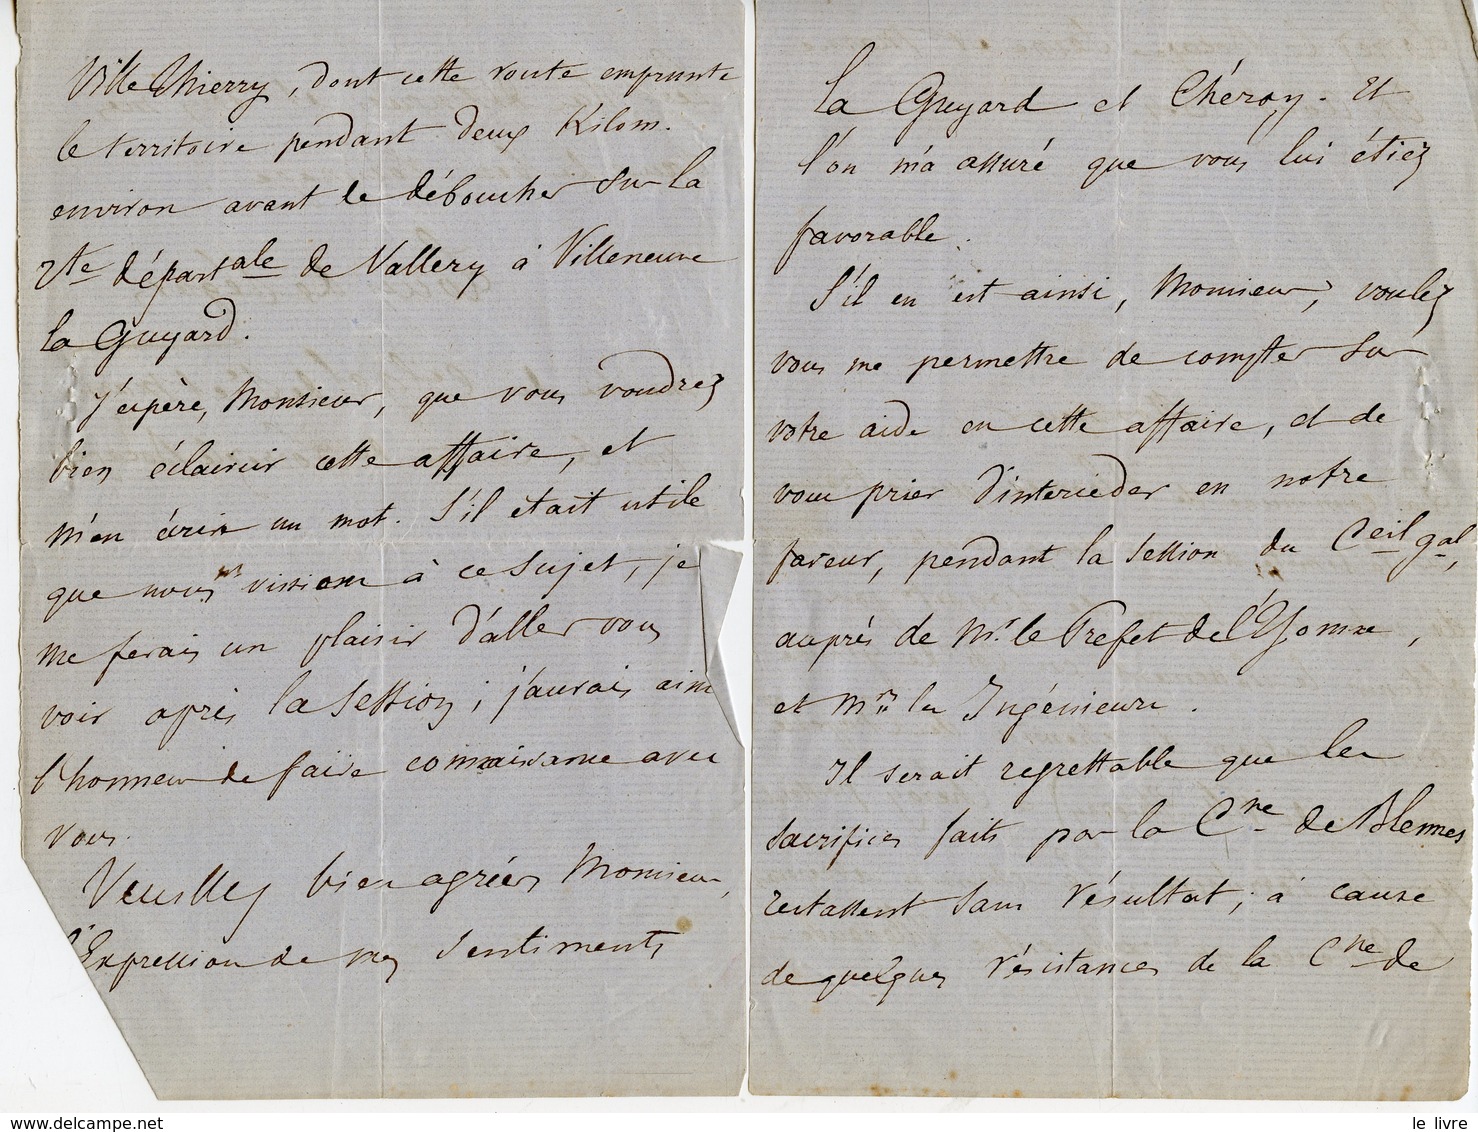 Ville Thierry, dont cette route emprunte
le territoire pendant deux Kilom.
environ avant de déboucher sur la
rte départale de Vallery à Villeneuve
la Guyard.
J'espère, Monsieur, que vous voudrez
bien éclaircir cette affaire, et
m'en écrire un mot. S'il était utile
que nous vissions à ce sujet, je
me ferais un plaisir d'aller vous
voir après la session; j'aurais ainsi
l'honneur de faire connaissance avec
vous.
Veuillez bien agréer, Monsieur,
l'Expression de mes Sentiments
la Guyard et Chéroy. Et
l'on m'a assuré que vous lui étiez
favorable.
S'il en est ainsi, Monsieur, voulez
vous me permettre de compter sur
votre aide en cette affaire, et de
vous prier d'intercéder en notre
faveur, pendant la session du Ceil gal,
auprès de Mr. le Préfet de l'Yonne,
et Mrs les Ingénieurs.
Il serait regrettable que les
sacrifices faits par la Cne de Blennes
restassent sans résultat, à cause
de quelques résistances de la Cne de
le livre